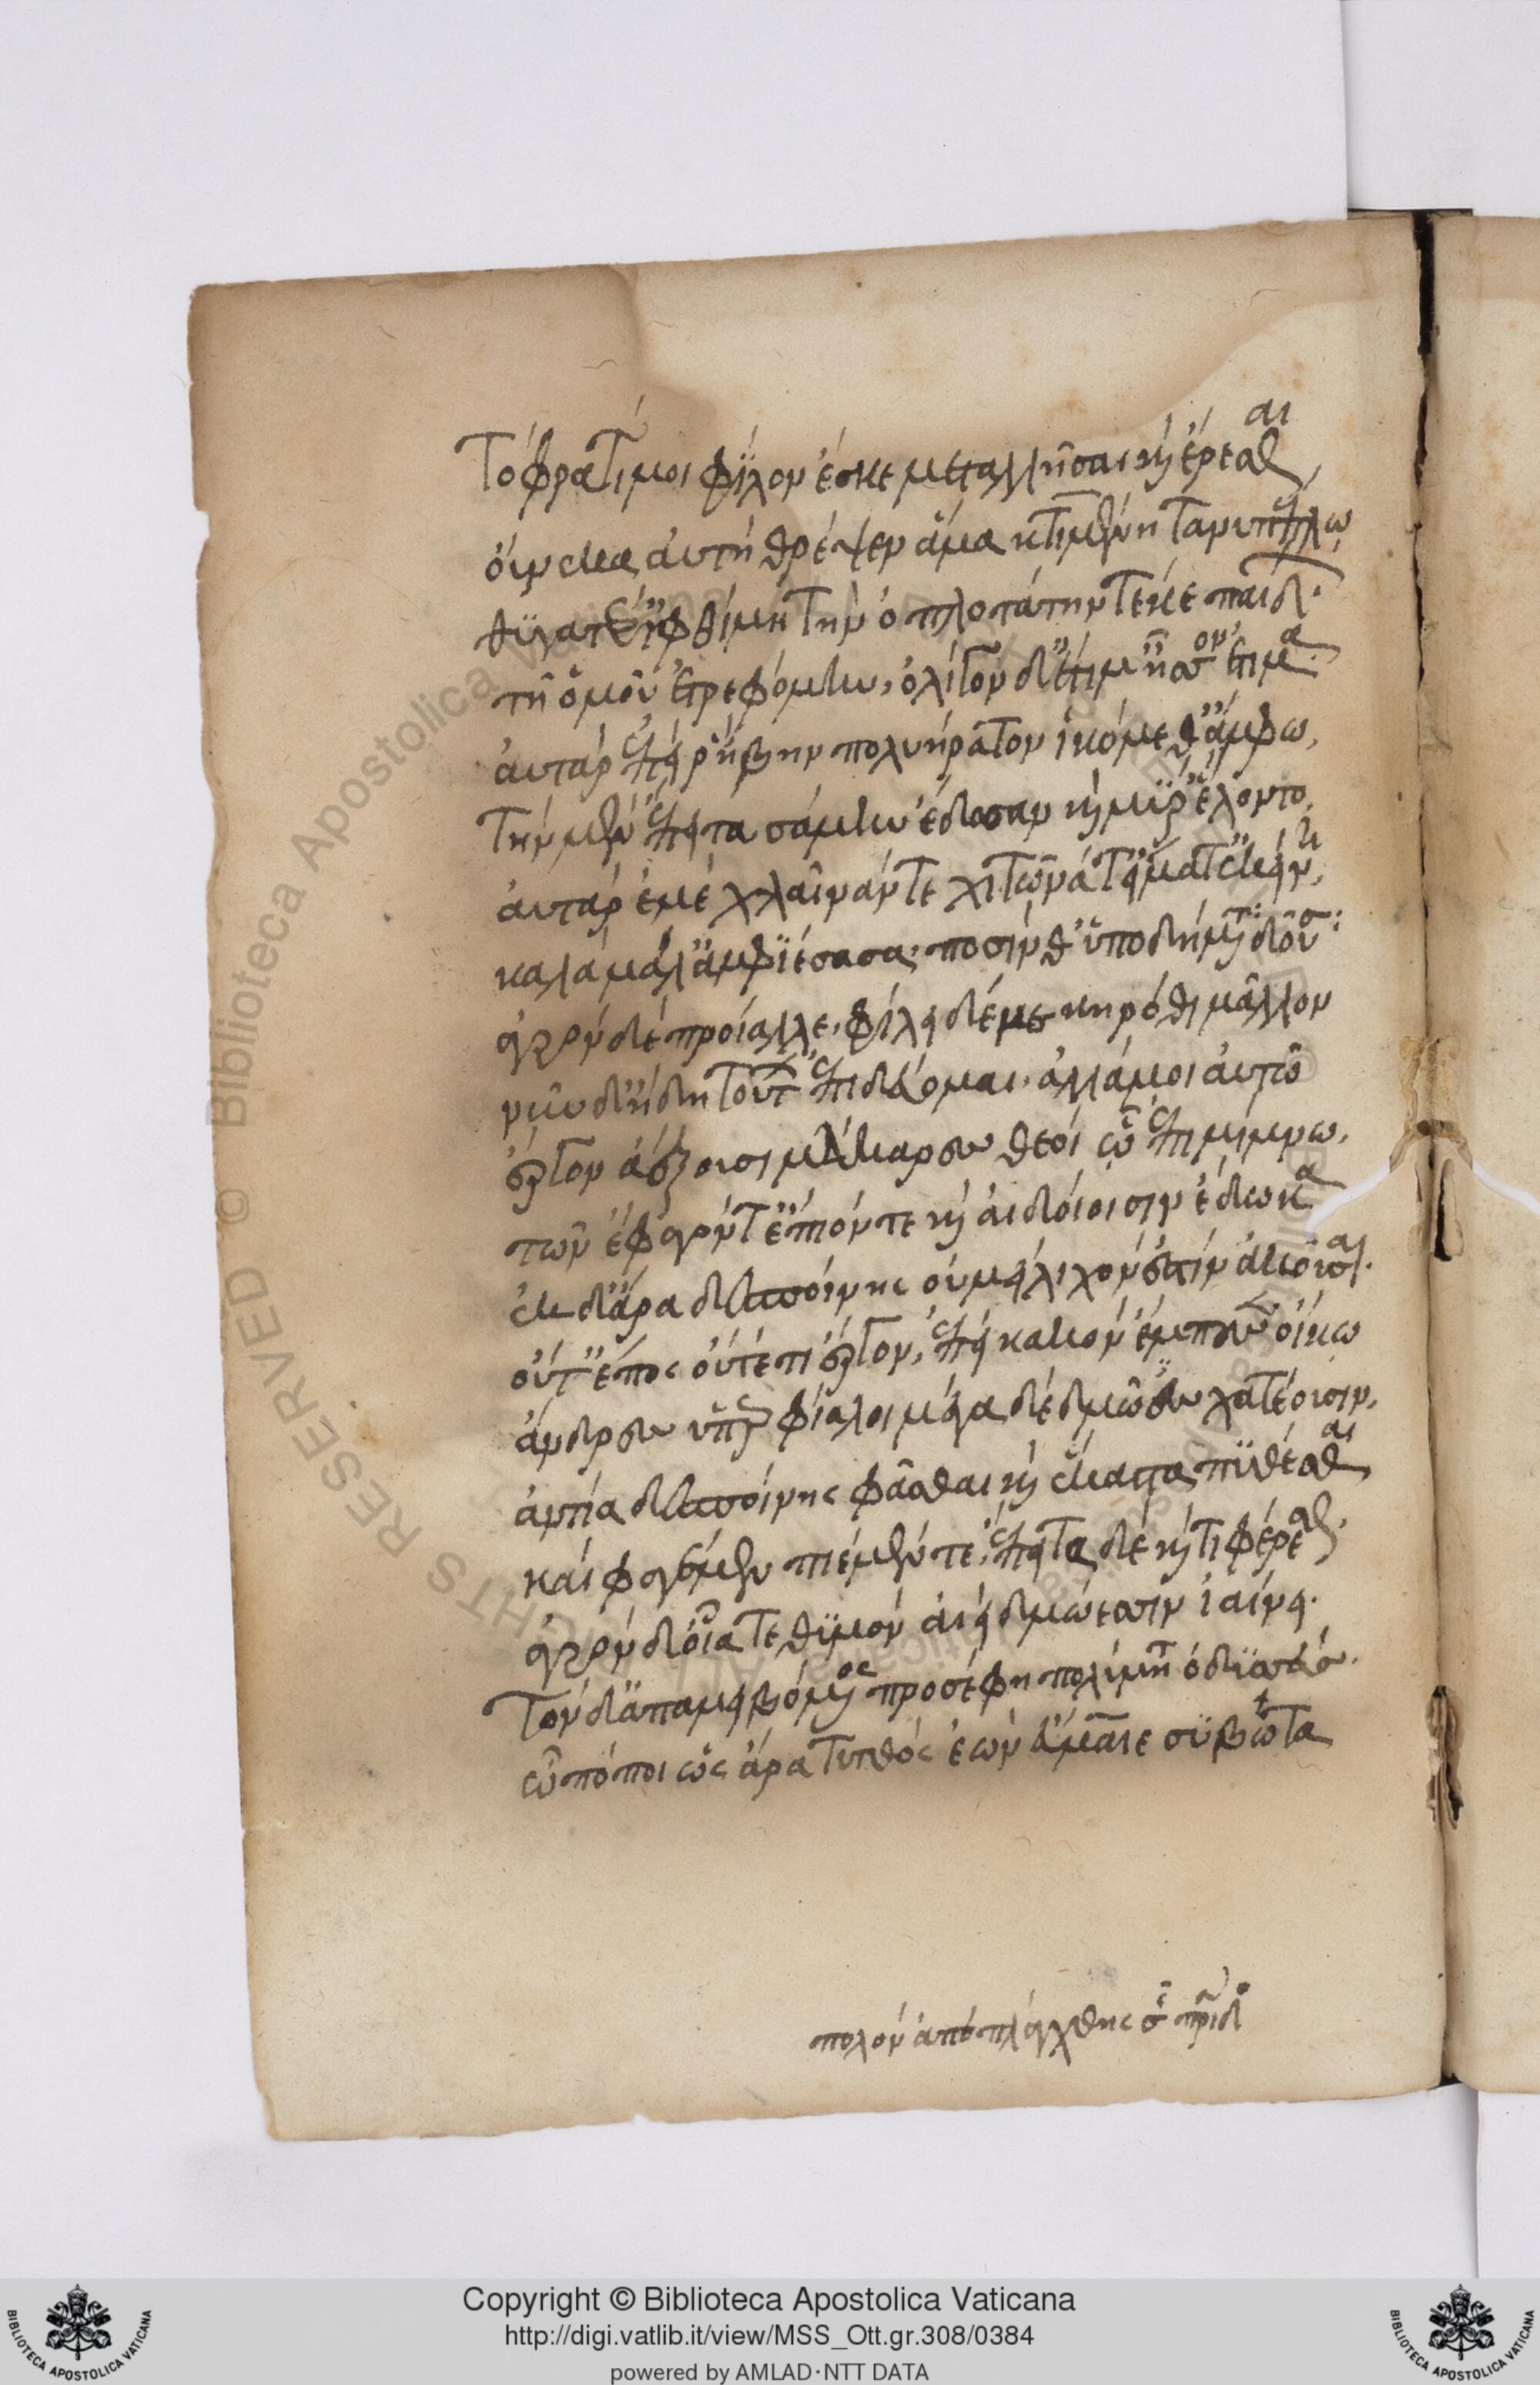 τόφρά τί μοι φίλον ἔσκε μεταλλῆσαι καὶ ἐρέσθαι,
οὕνεκα αὐτὴ θρέψεν ἅμα κτιμένη τανυπέπλω
θυγατέρ' ἰφθίμη τὴν ὁπλοτάτην τέκε παίδ.
τῆ ὁμοῦ ἐτρεφόμην, ὀλίγον δέ τί μ' ἧσσον ἐτίμα.
αὐτὰρ ἐπεί ρ' ἥβην πολυήρατον ἱκόμεθ' ἄμφω,
τὴν μὲν ἔπειτα σάμην ἔδοσαν καὶ μυρί' ἕλοντο,
αὐτὰρ ἐμὲ χλαῖνάν τε χιτῶνά τ' εἵματ' ἐκείνη,
καλὰ μάλ' ἀμφιέσασα· ποσίν θ' ὑποδήματ δοῦσ:
ἀγρὸν δὲ προίαλλε, φίλει δέ με κηρόθι μᾶλλον
νῦν δ' ἤδη τούτ ἐπιδεύομαι. ἀλλά μοι αὐτῶ
ἔργον ἀέξουσι μάκαρες θεοὶ ὧ ἐπιμίμνω.
τῶν ἔφαγόν τ' ἔπιόν τε καὶ αἰδοίοισιν ἔδωκα
ἐκ δ' ἄρα δεσποίνης οὐ μείλιχον ἔστιν ἀκοῦσαι.
οὔτ' ἔπος οὔτέ τι ἔργον, ἐπεὶ κακὸν ἔμπεσεν οἴκω
ἄνδρες ὑπερφίαλοι μέγα δὲ δμῶες χατέουσιν,
ἀντία δεσποίνης φάσθαι καὶ ἕκαστα πυθέσθαι
καὶ φαγέμεν πιέμεν τε, ἔπειτα δὲ καί τι φέρεσθαι.
ἀγρὸν δ' οἷά τε θυμὸν ἀεὶ δμώεσσιν ἰαίνει.
τὸν δ' ἀπαμειβόμενος προσέφη πολύμητ ὀδυσσεύσ.
ὦ πόποι ὡς ἄρα τυτθὸς ἐὼν εὔμαιε συβῶτα
πολλὸν ἀπόπλάγχθης σῆ πατριδ